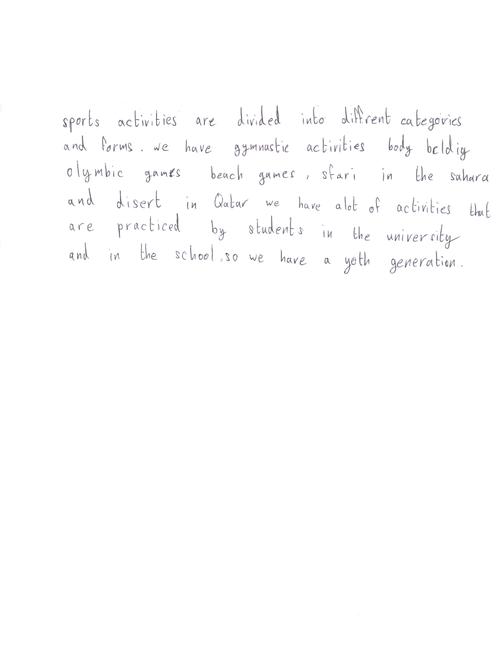 sports activities are divided into diffrent categories
and forms. we have gymnastic activities body beldiy
olymbic games beach games, sfari in the sahara
and disert in Qatar we have alot of activities that
are practiced by students in the university
and in the school.so we have a yoth generation.